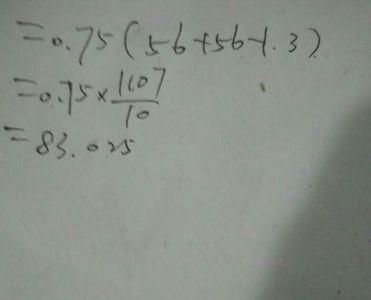 =0.75(56+56-1.3)
=0.75×1107/10
=83.025